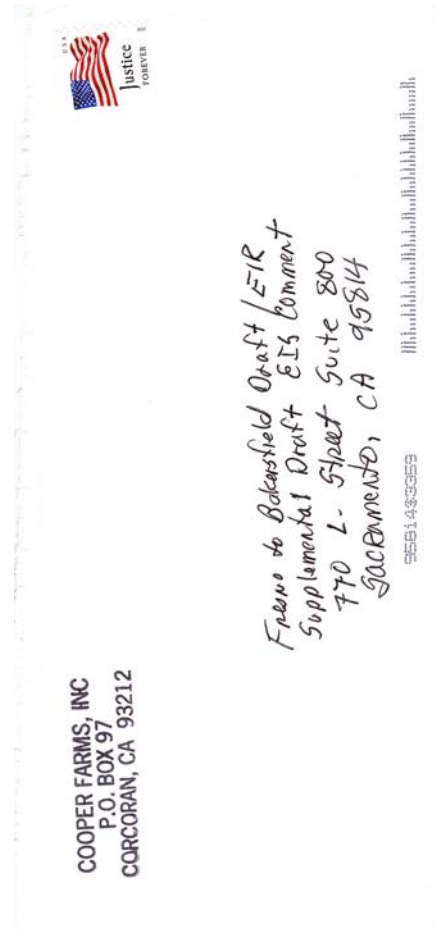 COOPER FARMS, INC
P.O. BOX 97
CORCORAN, CA 93212
USA
Justice
FOREVER
Fresno to Bakersfield Draft / EIR
Supplemental Draft EIS Comment
770 L- Street Suite 800
Sacramento, CA 95814
9581483359